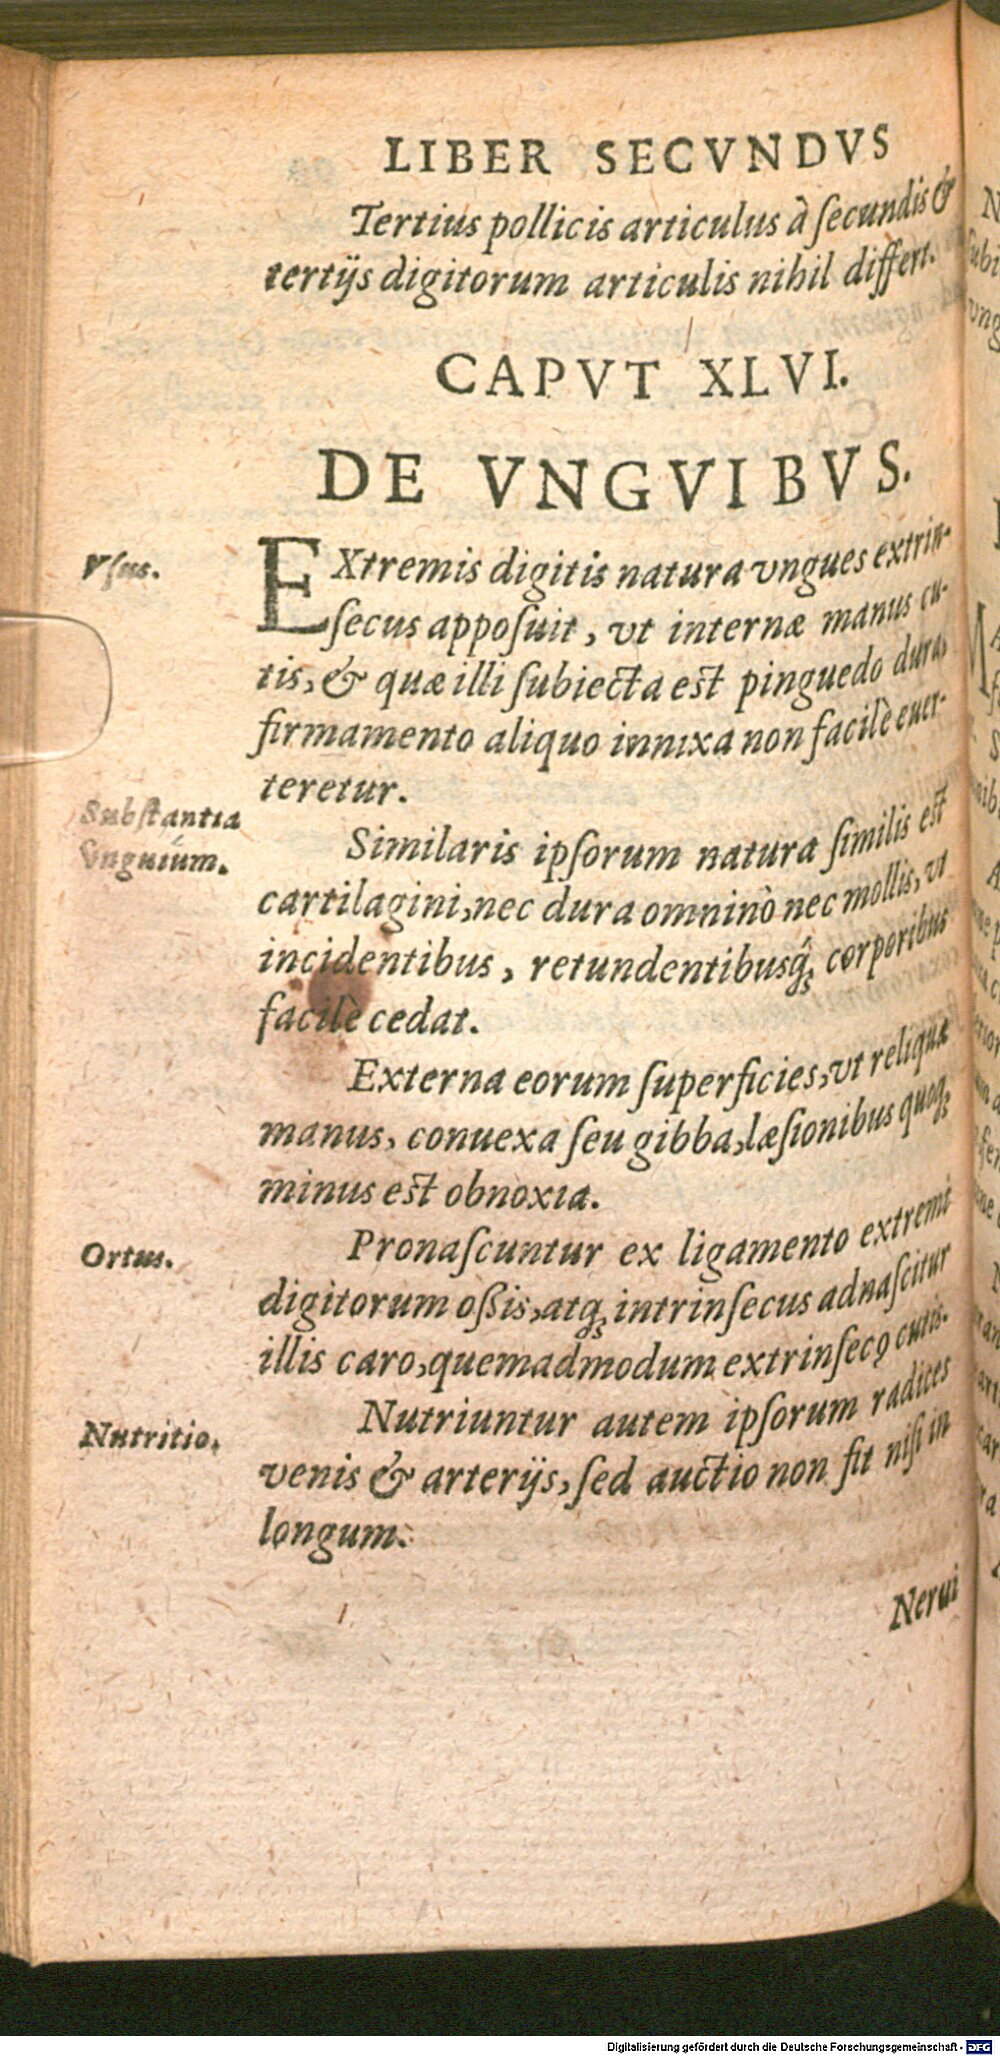 LIBER SECVNDVS
Tertius pollicis articulus à ſecundis &
tertijs digitorum articulis nihil differt.
CAPVT XLVI.
DE VNGVIBVS.
Vſus.
EXtremis digitis natura vngues extrin-
ſecus appoſuit, vt internæ manus cu-
tis, & quæ illi ſubiecta est pinguedo dura,
firmamento aliquo innixa non facilè euer-
teretur.
Subſtantia
Vnguium.
Similaris ipſorum natura ſimilis est
cartilagini, nec dura omninò nec mollis, vt
incidentibus, retundentibusq́; corporibus
facilè cedat.
Externa eorum ſuperficies, vt reliquæ
manus, conuexa ſeu gibba, læſionibus quoq;
minus est obnoxia.
Ortus.
Pronaſcuntur ex ligamento extremi
digitorum oſsis, atq; intrinſecus adnaſcitur
illis caro, quemadmodum extrinſecꝰ cutis.
Nutritio.
Nutriuntur autem ipſorum radices
venis & arterijs, ſed auctio non fit niſi in
longum.
Nerui
Digitalisierung gefördert durch die Deutsche Forschungsgemeinschaft - DFG